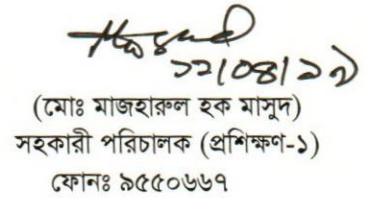 (মোঃ মাজহারুল হক মাসুদ)
সহকারী পরিচালক (প্রশিক্ষণ-১)
ফোনঃ ৯৫৫০৬৬৭